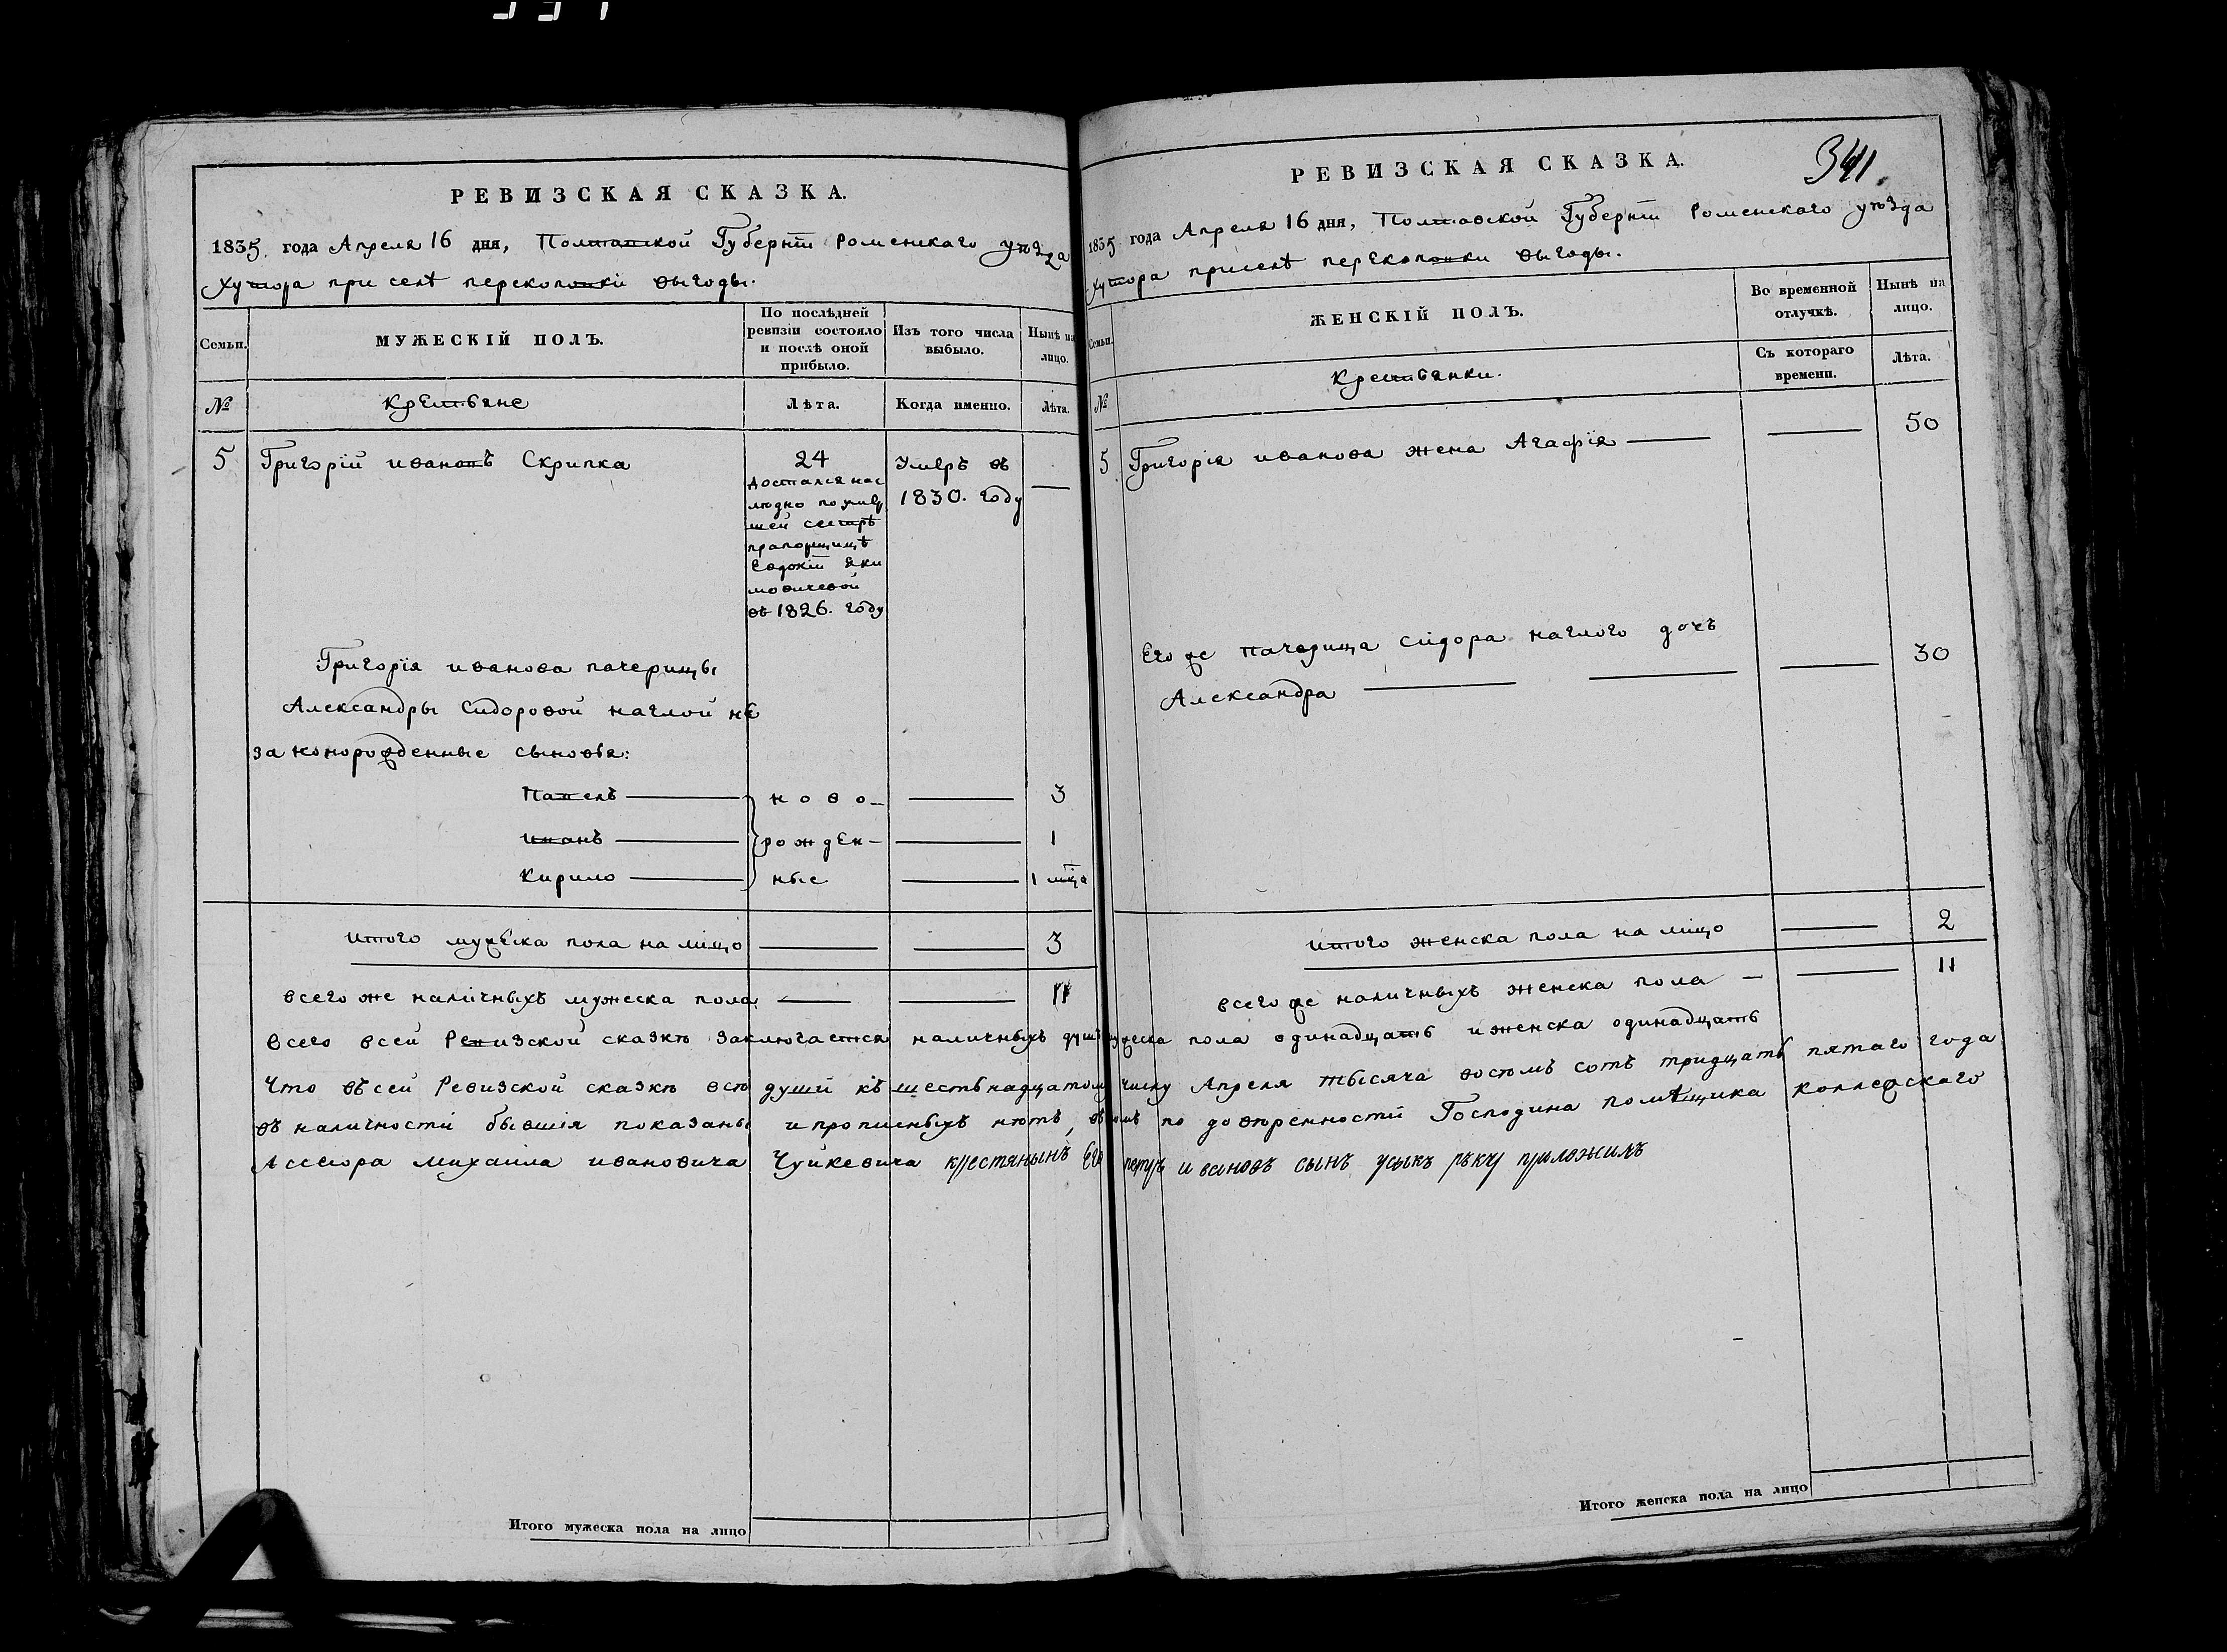 РЕВИЗСКАЯ СКАЗКА.
1835. года Апреля 16 дня, Полтавской Губернїи Роменскаго уѣзда
Хутора при селѣ перекоповки выгоды.
Семьи.
МУЖЕСКІЙ ПОЛЪ.
По послѣдней ревизіи состояло и послѣ оной прибыло.
Изъ того числа выбыло.
Нынѣ на лицо.
№
Крестьяне
Лѣта.
Когда именно.
Лѣта.
5 Григорїй ивановъ Скрипка 24 Умеръ въ
достался нас
1830. году
людно по умер
шей сестрѣ
прапорщицѣ
Евдокїи Яки
мовичевой
въ 1826. году
Григорїя иванова пачерицы
Александры Сидоровой наглой не
законорожденные сыновья:
Павелъ ново- 3
иванъ рожден- 1
Кирило ные 1 мца
итого мужеска пола на лицо 3
всего же наличныхъ мужеска пола 11
Итого мужеска пола на лицо
РЕВИЗСКАЯ СКАЗКА.
341.
1835 года Апреля 16 дня, Полтавской Губернїи Роменскаго уѣзда
хутора приселѣ перекоповки выгоды.
Семьи.
ЖЕНСКІЙ ПОЛЪ.
Во временной отлучкѣ.
Нынѣ на лицо.
Съ котораго времени.
Лѣта.
№
Крестьянки.
5 Григорїя иванова жена Агафїя 50
Его же пачерица Сидора наглого дочь
Александра 30
итого женска пола на лицо 2
всего же наличныхъ женска пола 11
Всего всей Ревизской сказкѣ заключается наличныхъ душъ мужеска пола одинадцать иженска одинадцать
Что въсей Ревизской сказкѣ всѣ души къ шестьнадцатому числу Апреля тысяча восемъ сотъ тридцать пятаго года
въ наличности бывшїя показаны ипрописныхъ нѣтъ, въ томъ по довѣренности Господина помѣщика коллежскаго
Ассесора михаила ивановича Чуйкевича крестянынъ Его петръ ивановъ сынъ усыкъ рѣку приложилъ
Итого женска пола на лицо